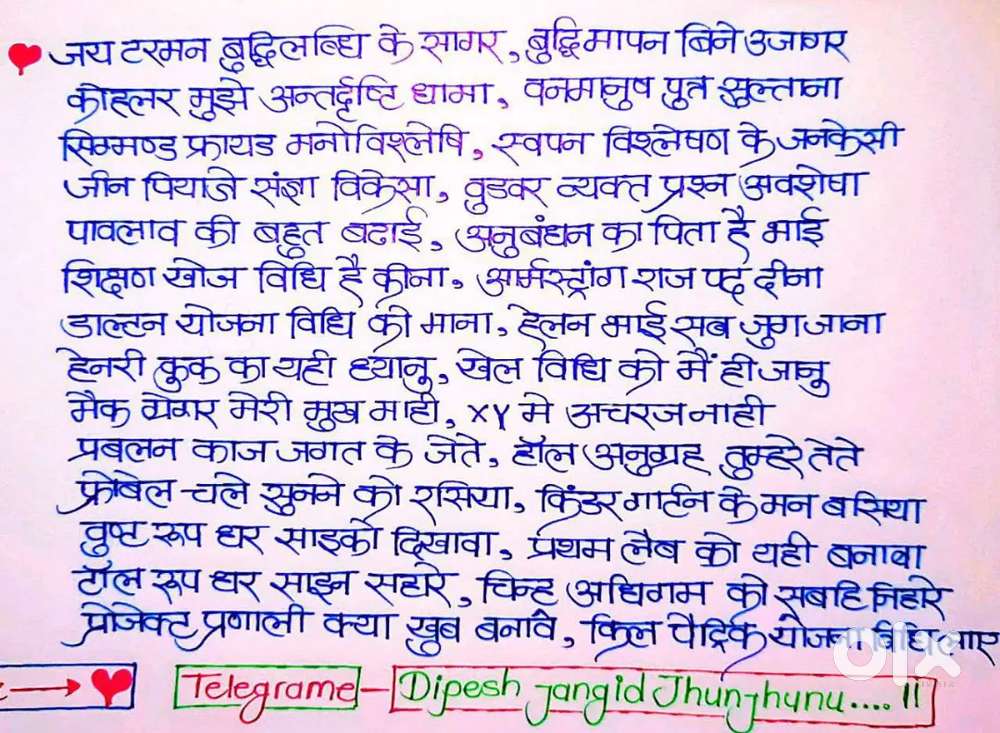 जय टरमन बुद्धिलब्धि के सागर, बुद्धिमापन बिने उजागर
कोहलर मुझे अन्तर्दृष्टि धामा, वनमानुष पुत्र सुल्ताना
सिग्मण्ड फ्रायड मनोविश्लेषि, स्वपन विश्लेषण के जनकेसी
जीन पियाजे संज्ञा विकेसा, वुडवर व्यक्त प्रश्न अवशेषा
पावलाव की बहुत बढाई, अनुबंधन का पिता है भाई
शिक्षण खोज विधि है कीना, आर्मस्ट्रांग राज पद दीना
डाल्टन योजना विधि को माना, हेलन भाई सब जुग जाना
हेनरी कुक का यही ध्यानु, खेल विधि को मैं ही जानु
मैक ग्रेगर मेरी मुख माही, XY मे अचरज नाही
प्रबलन काज जगत के जेते, हॉल अनुग्रह तुम्हरे तेते
फ्रोबेल चले सुनने को रसिया, किंडर गार्टन के मन बसिया
वुण्ट रूप धर साइको दिखावा, प्रथम लैब को यही बनावा
टॉल रूप धर साइन सहारे, चिन्ह अधिगम को सबहि निहारे
प्रोजेक्ट प्रणाली क्या खुब बनावे, किल पैट्रिक योजना विधि लाए
Telegrame – Dipesh jangid Jhunjhunu.... ||
olx
INDIA